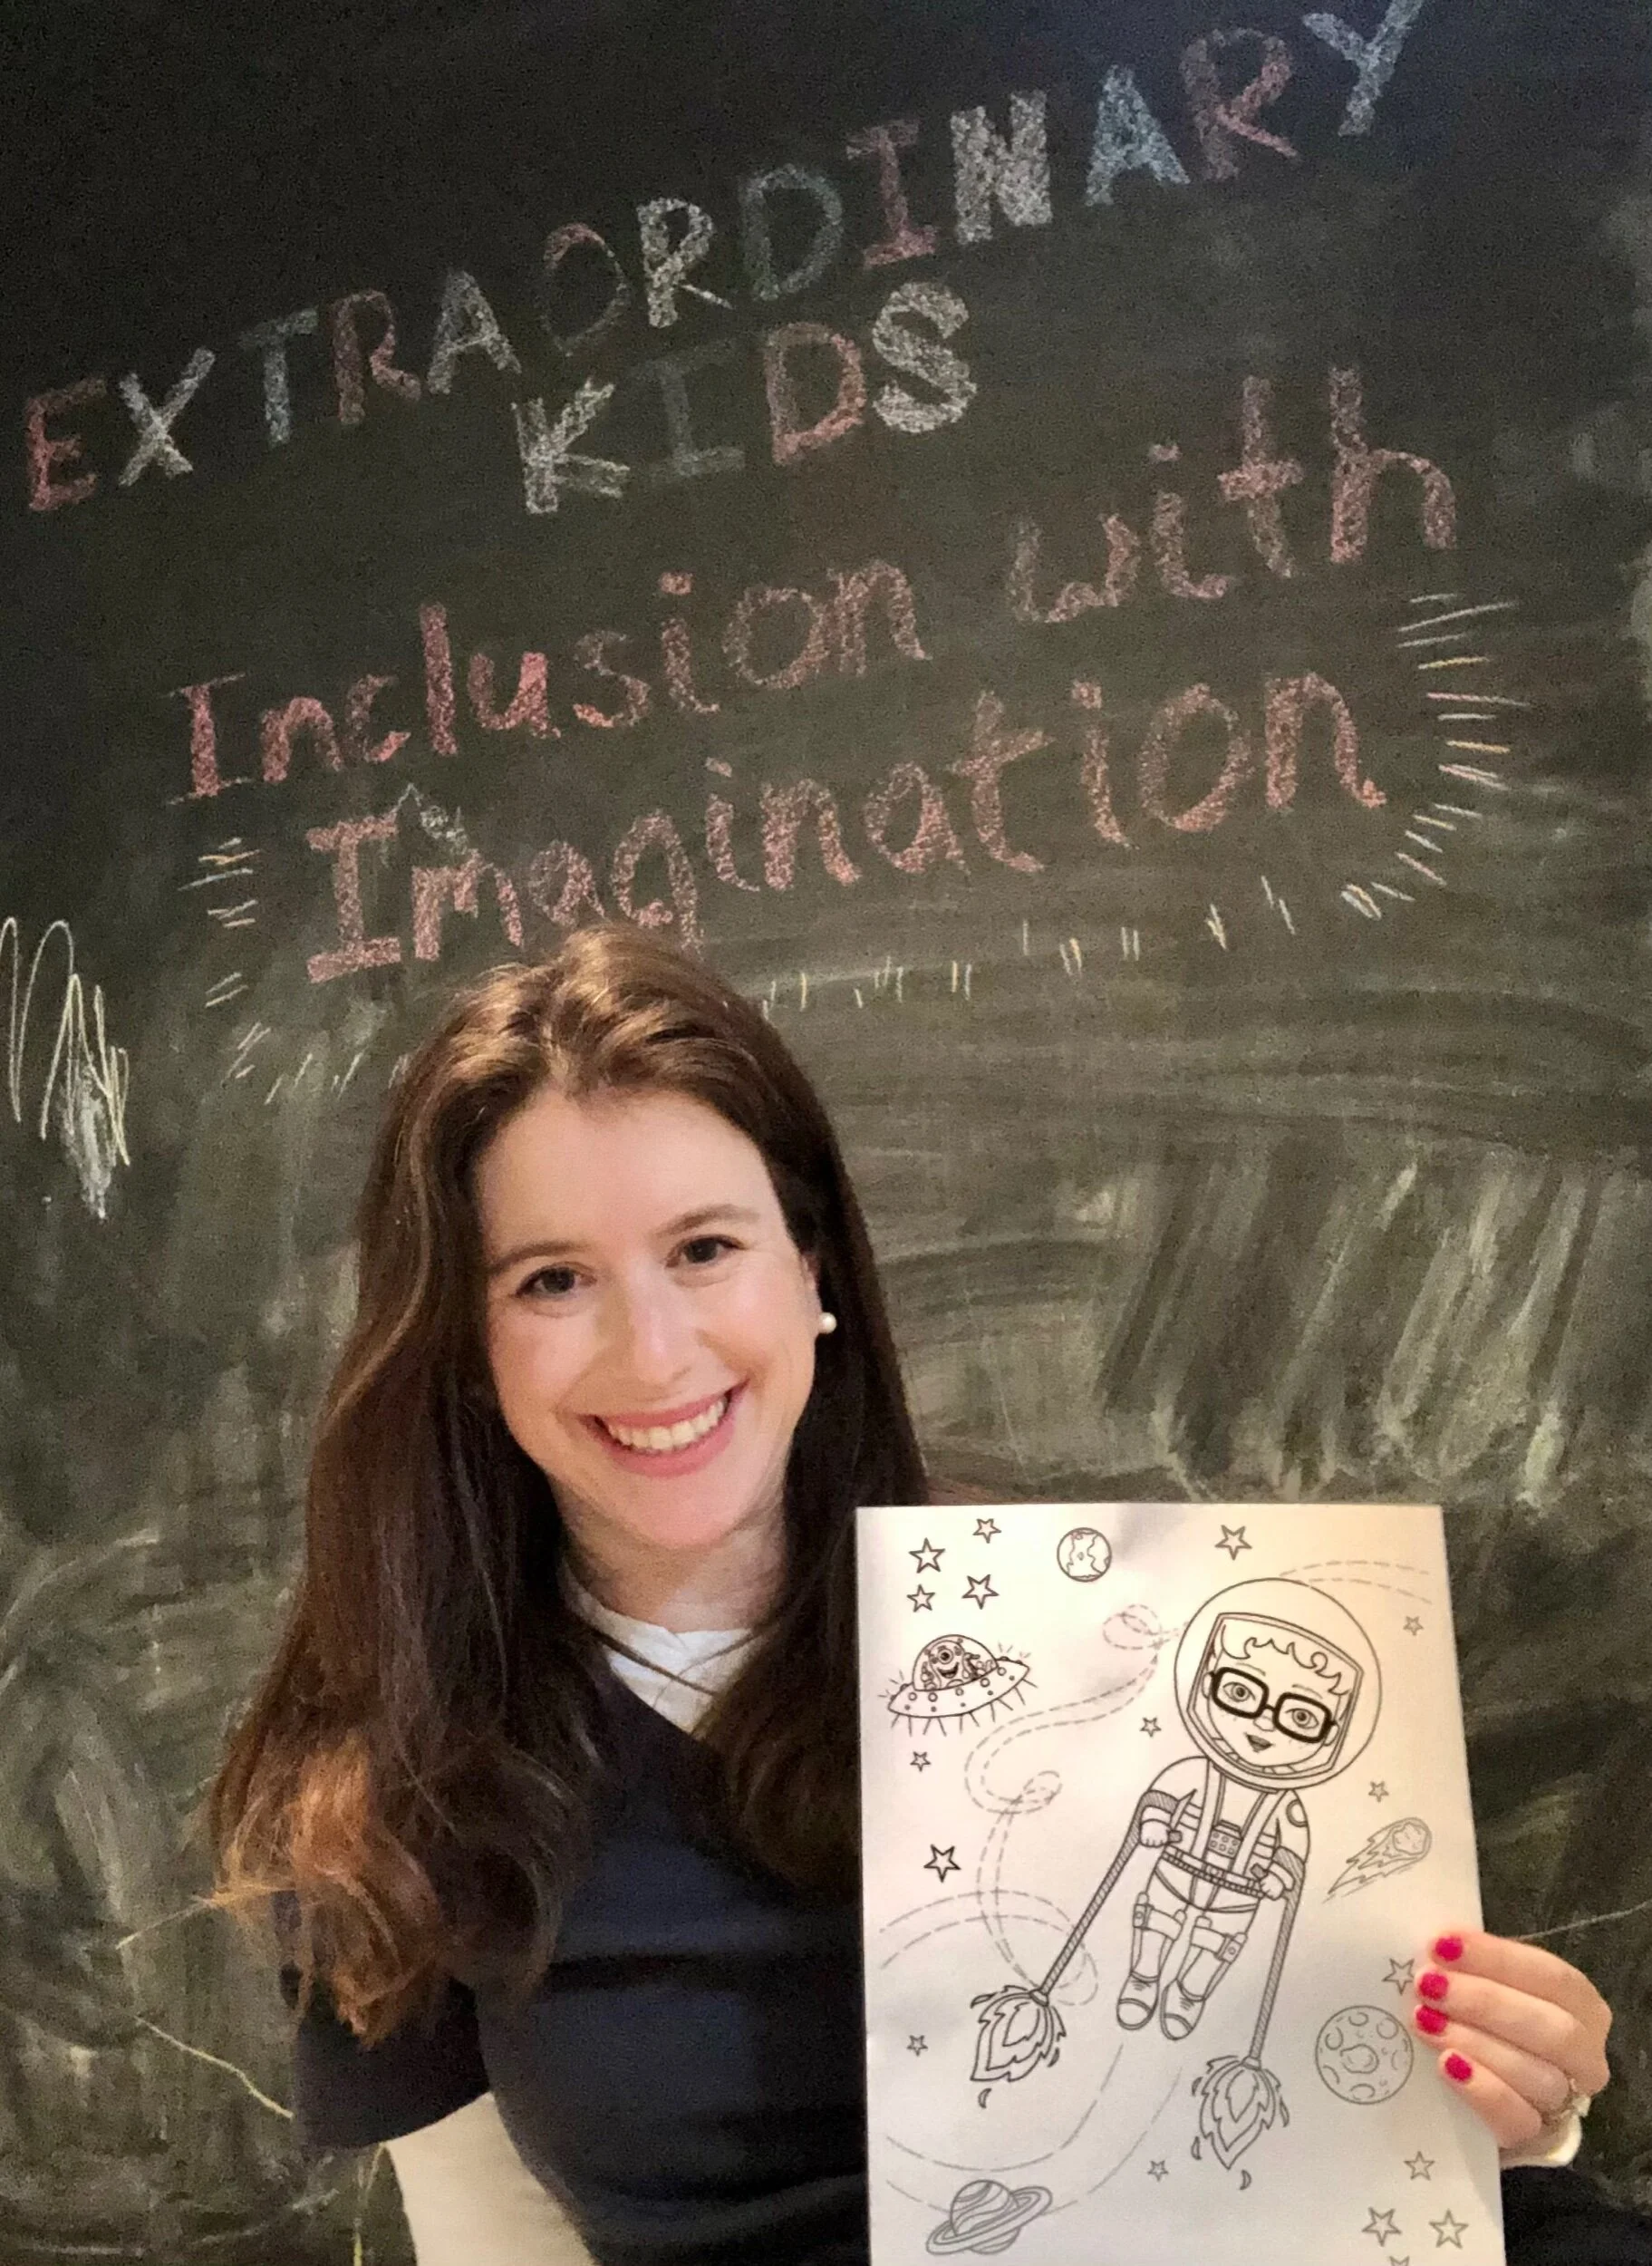 EXTRAORDINARY
KIDS
Inclusion with
Imagination